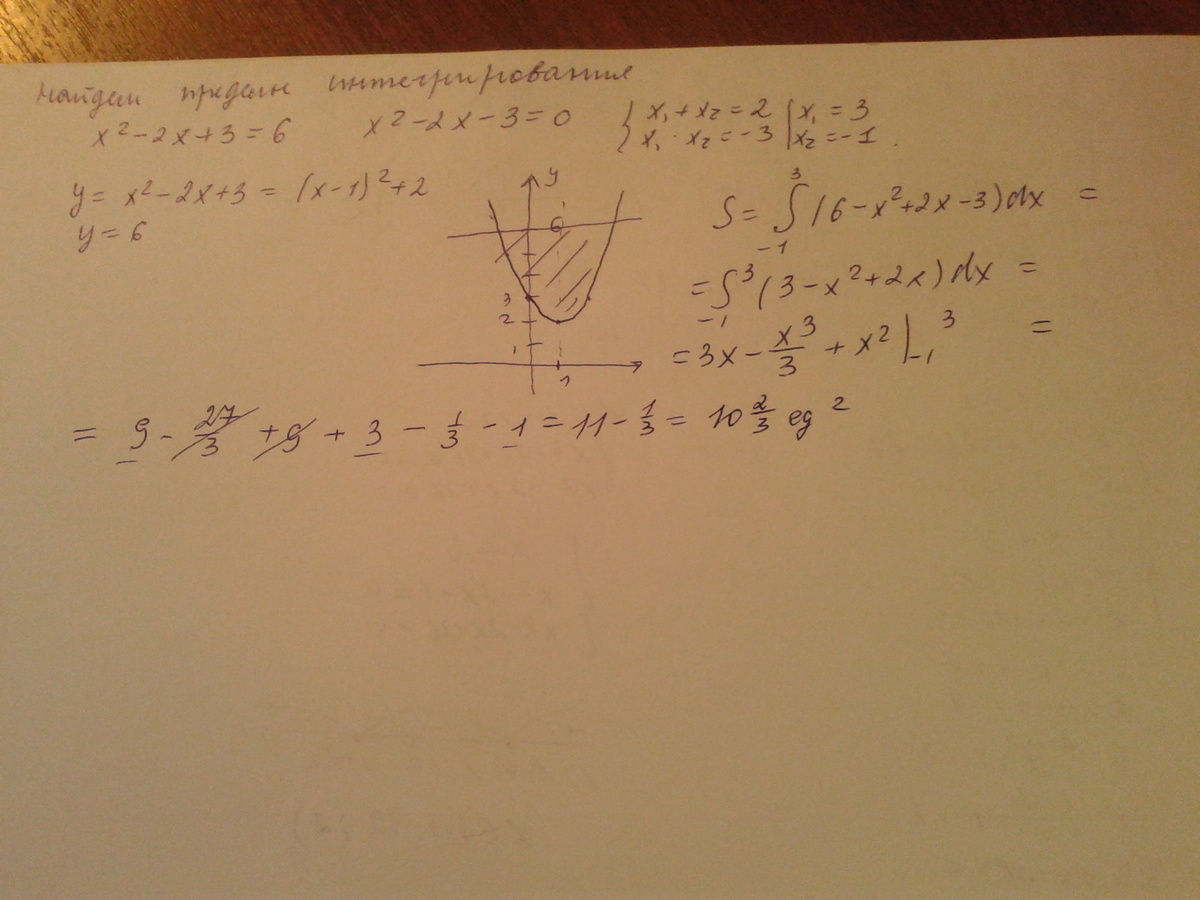 Найдем пределы интегрирования
x² - 2x + 3 = 6   x² - 2x - 3 = 0   { x₁ + x₂ = 2 | x₁ = 3
x₁ · x₂ = -3 | x₂ = -1 .
y = x² - 2x + 3 = (x-1)² + 2
y = 6
y
6
3
2
1
1
S = ∫₋₁³ (6 - x² + 2x - 3) dx =
= ∫₋₁³ (3 - x² + 2x) dx =
= 3x - x³/3 + x² |₋₁³ =
= 9 - 27/3 + 9 + 3 - 1/3 - 1 = 11 - 1/3 = 10 2/3 ед²